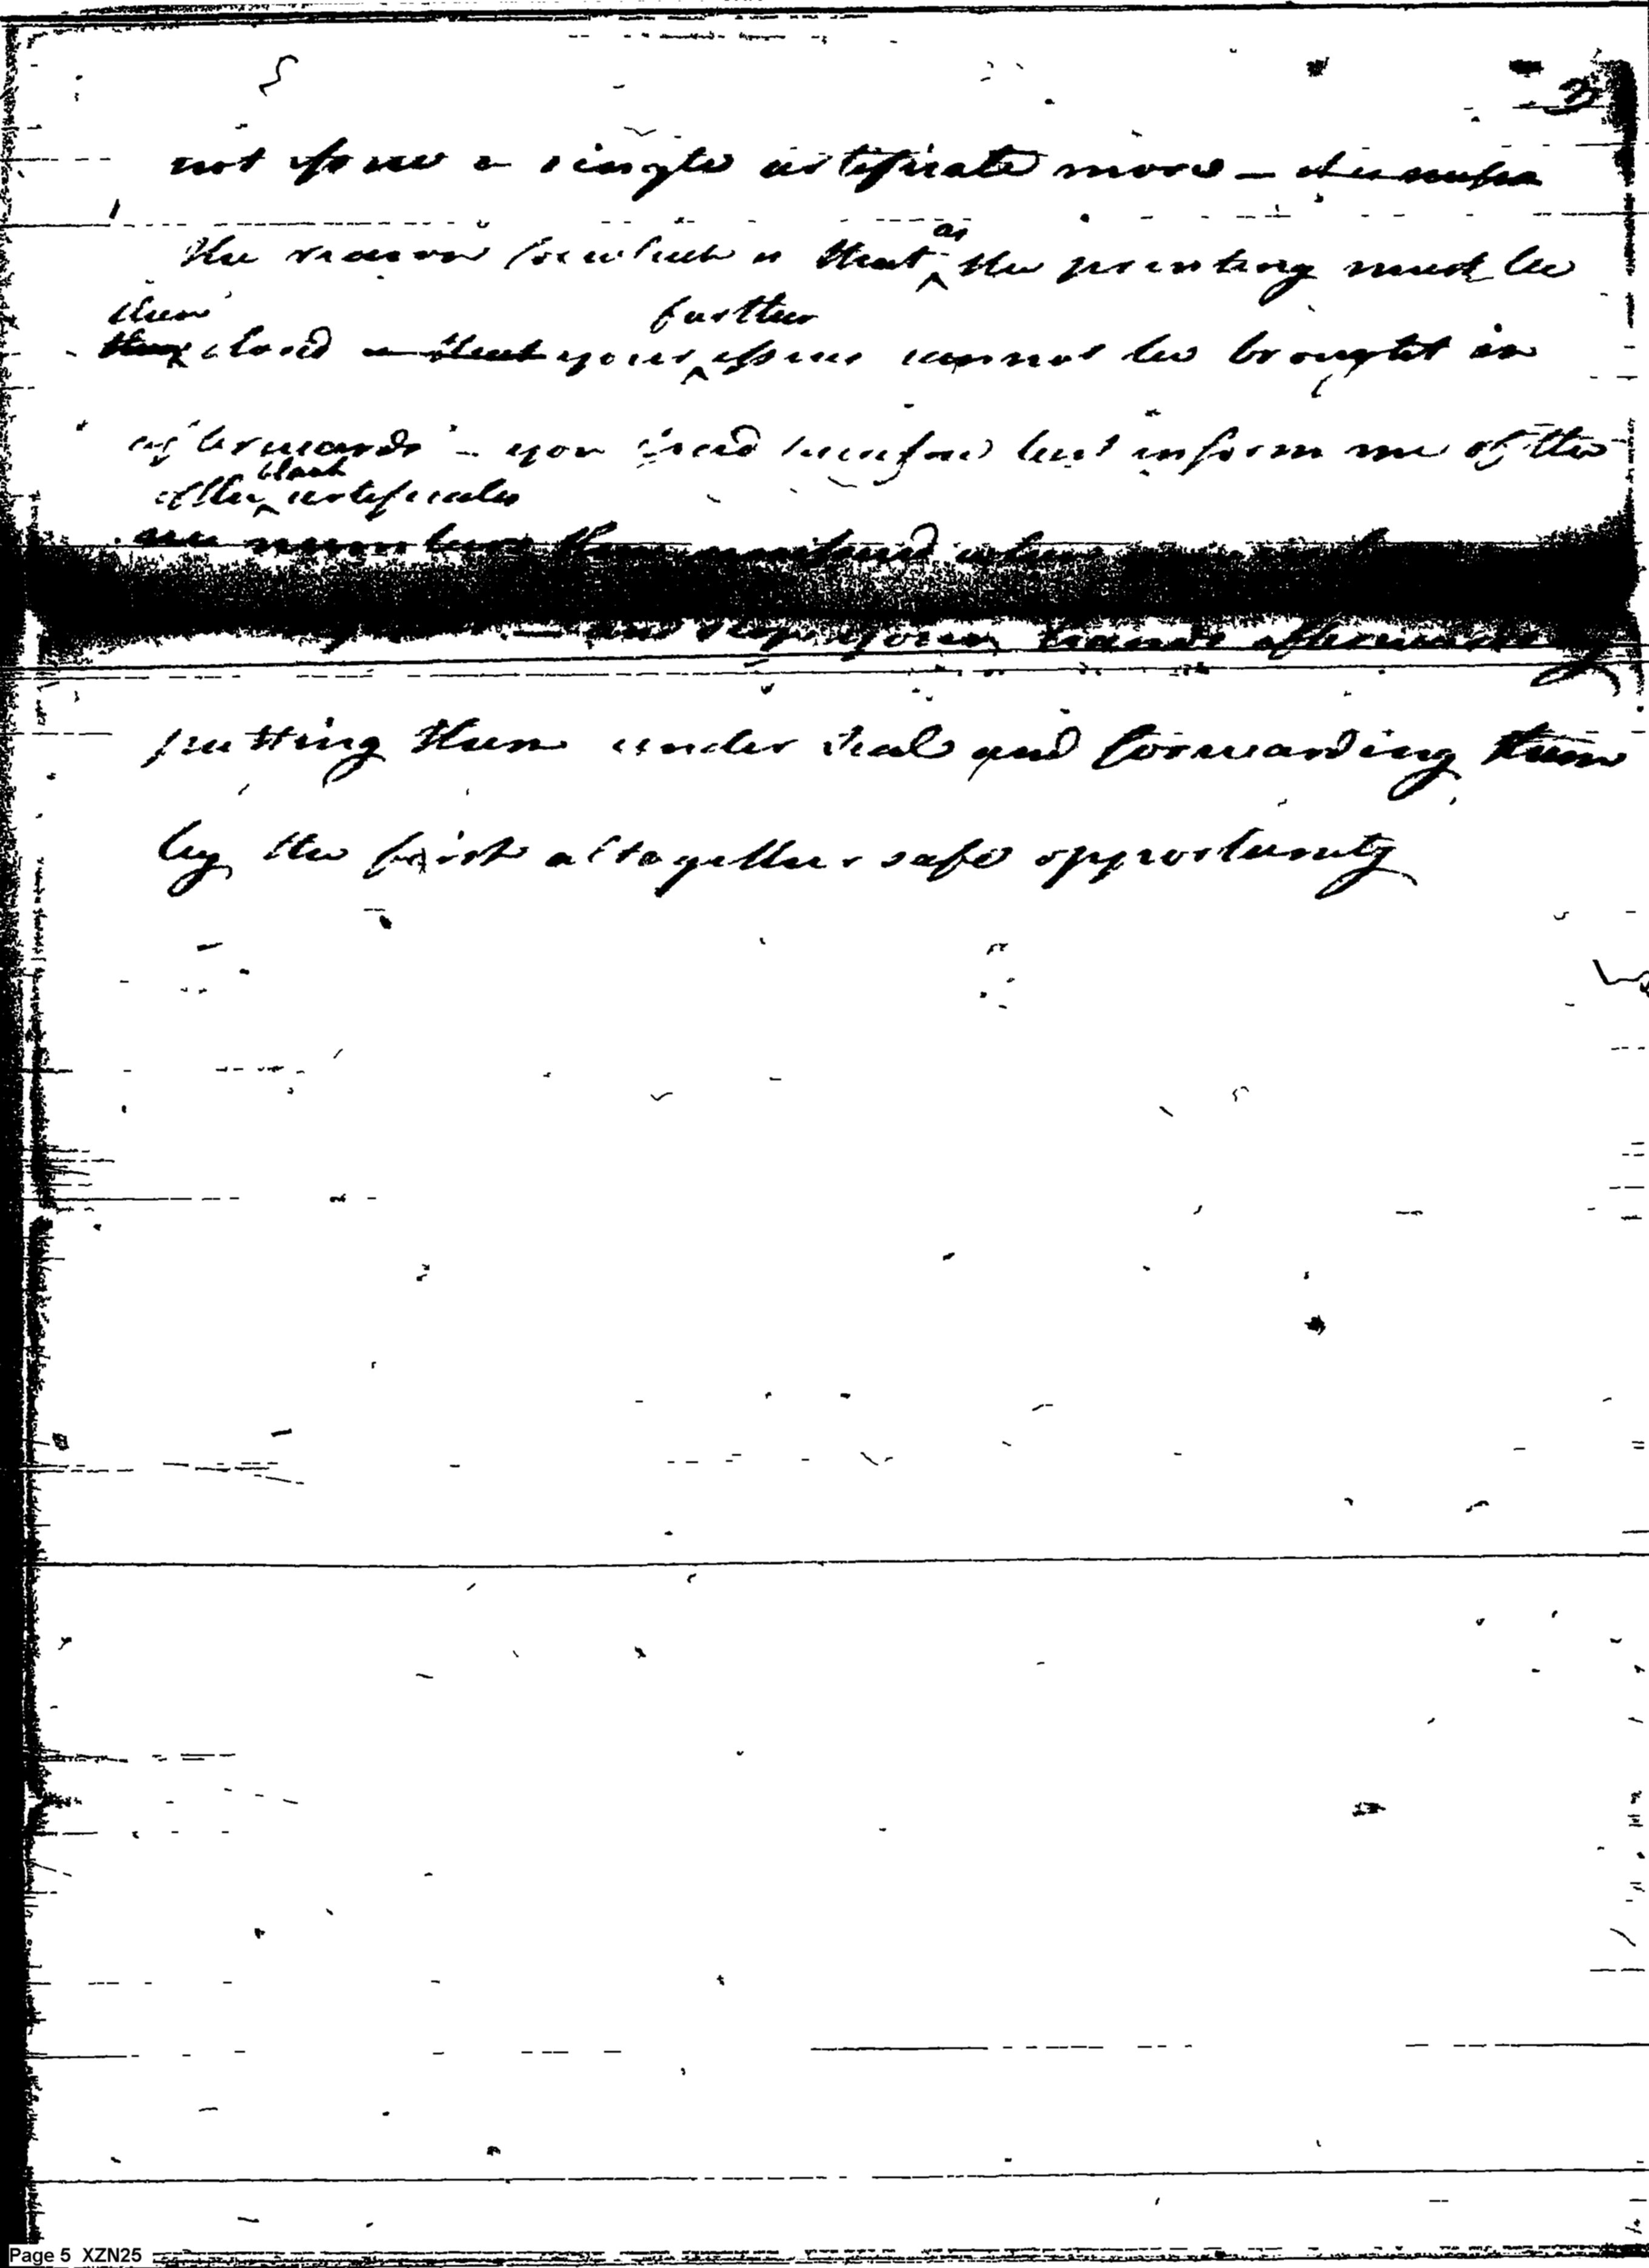 3
not issue a single certificate more —
the reason for which is that as the printing must be
then closed — that your further issues cannot be brought in
afterwards — you need therefore but inform me of the
of the blank certificates
number then
your hands afterwards
putting them under seal and forwarding them
by the first altogether safe opportunity
Page 5 XZN25